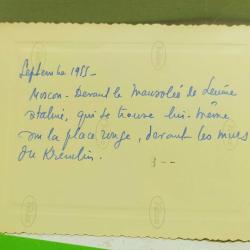 Septembre 1955-
Moscou - Devant le Mausolée de Lénine
Staline, qui se trouve lui-même
sur la place rouge, devant les murs
du Kremlin.